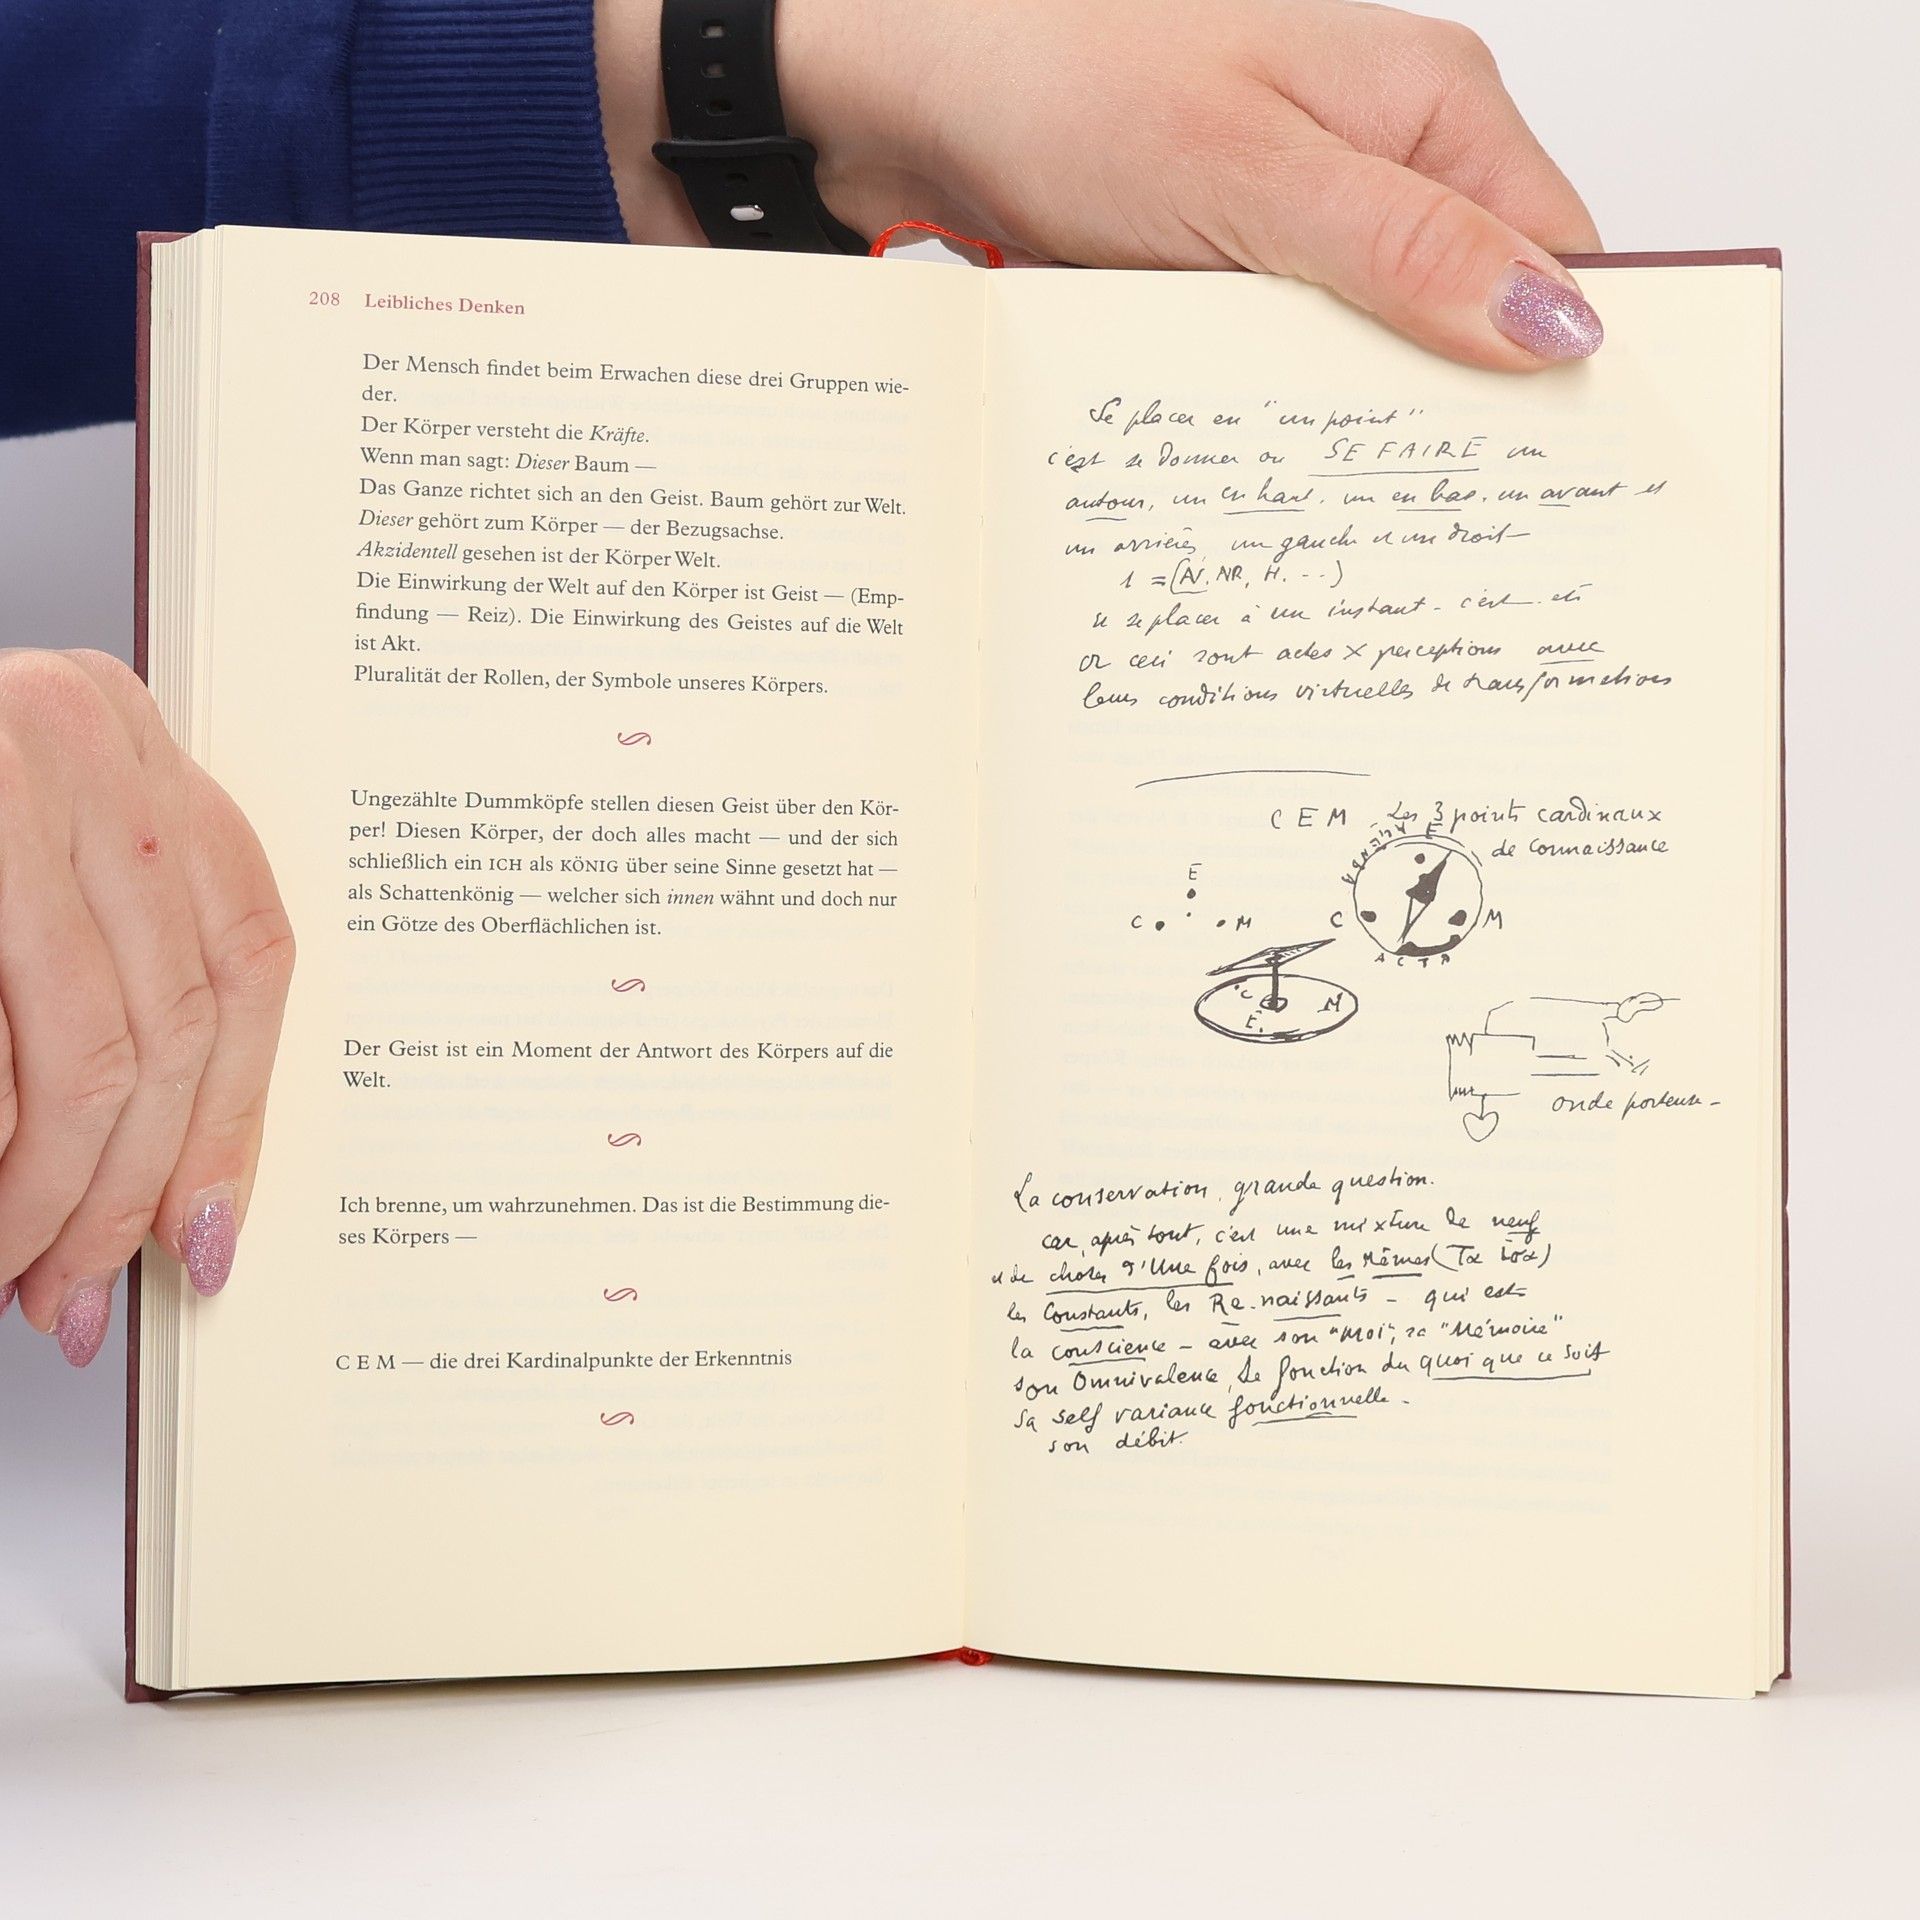 208 Leibliches Denken
Der Mensch findet beim Erwachen diese drei Gruppen wie-
der.
Der Körper versteht die Kräfte.
Wenn man sagt: Dieser Baum —
Das Ganze richtet sich an den Geist. Baum gehört zur Welt.
Dieser gehört zum Körper — der Bezugsachse.
Akzidentell gesehen ist der Körper Welt.
Die Einwirkung der Welt auf den Körper ist Geist — (Emp-
findung — Reiz). Die Einwirkung des Geistes auf die Welt
ist Akt.
Pluralität der Rollen, der Symbole unseres Körpers.
Ungezählte Dummköpfe stellen diesen Geist über den Kör-
per! Diesen Körper, der doch alles macht — und der sich
schließlich ein ICH als KÖNIG über seine Sinne gesetzt hat —
als Schattenkönig — welcher sich innen wähnt und doch nur
ein Götze des Oberflächlichen ist.
Der Geist ist ein Moment der Antwort des Körpers auf die
Welt.
Ich brenne, um wahrzunehmen. Das ist die Bestimmung die-
ses Körpers —
C E M — die drei Kardinalpunkte der Erkenntnis
Se placer en "un point"
c'est se donner ou SE FAIRE un
autour, un en haut, un en bas, un avant et
un arrière, un gauche et un droit —
1 = (AV, AR, H. --)
se placer à un instant - c'est
or ceci sont actes × perceptions avec
leurs conditions virtuelles de transformations
C E M Les 3 points cardinaux
de connaissance
E
C M
E
C M
A C T A
C M
E
onde porteuse -
La conservation, grande question.
car, après tout, c'est une mixture de neuf
et de choses d'Une fois, avec les Mêmes
les Constants, les Re-naissants - qui est
la conscience - avec son "Moi", sa "Mémoire"
son Omnivalence, sa fonction du quoi que ce soit
sa self variance fonctionnelle -
son débit.